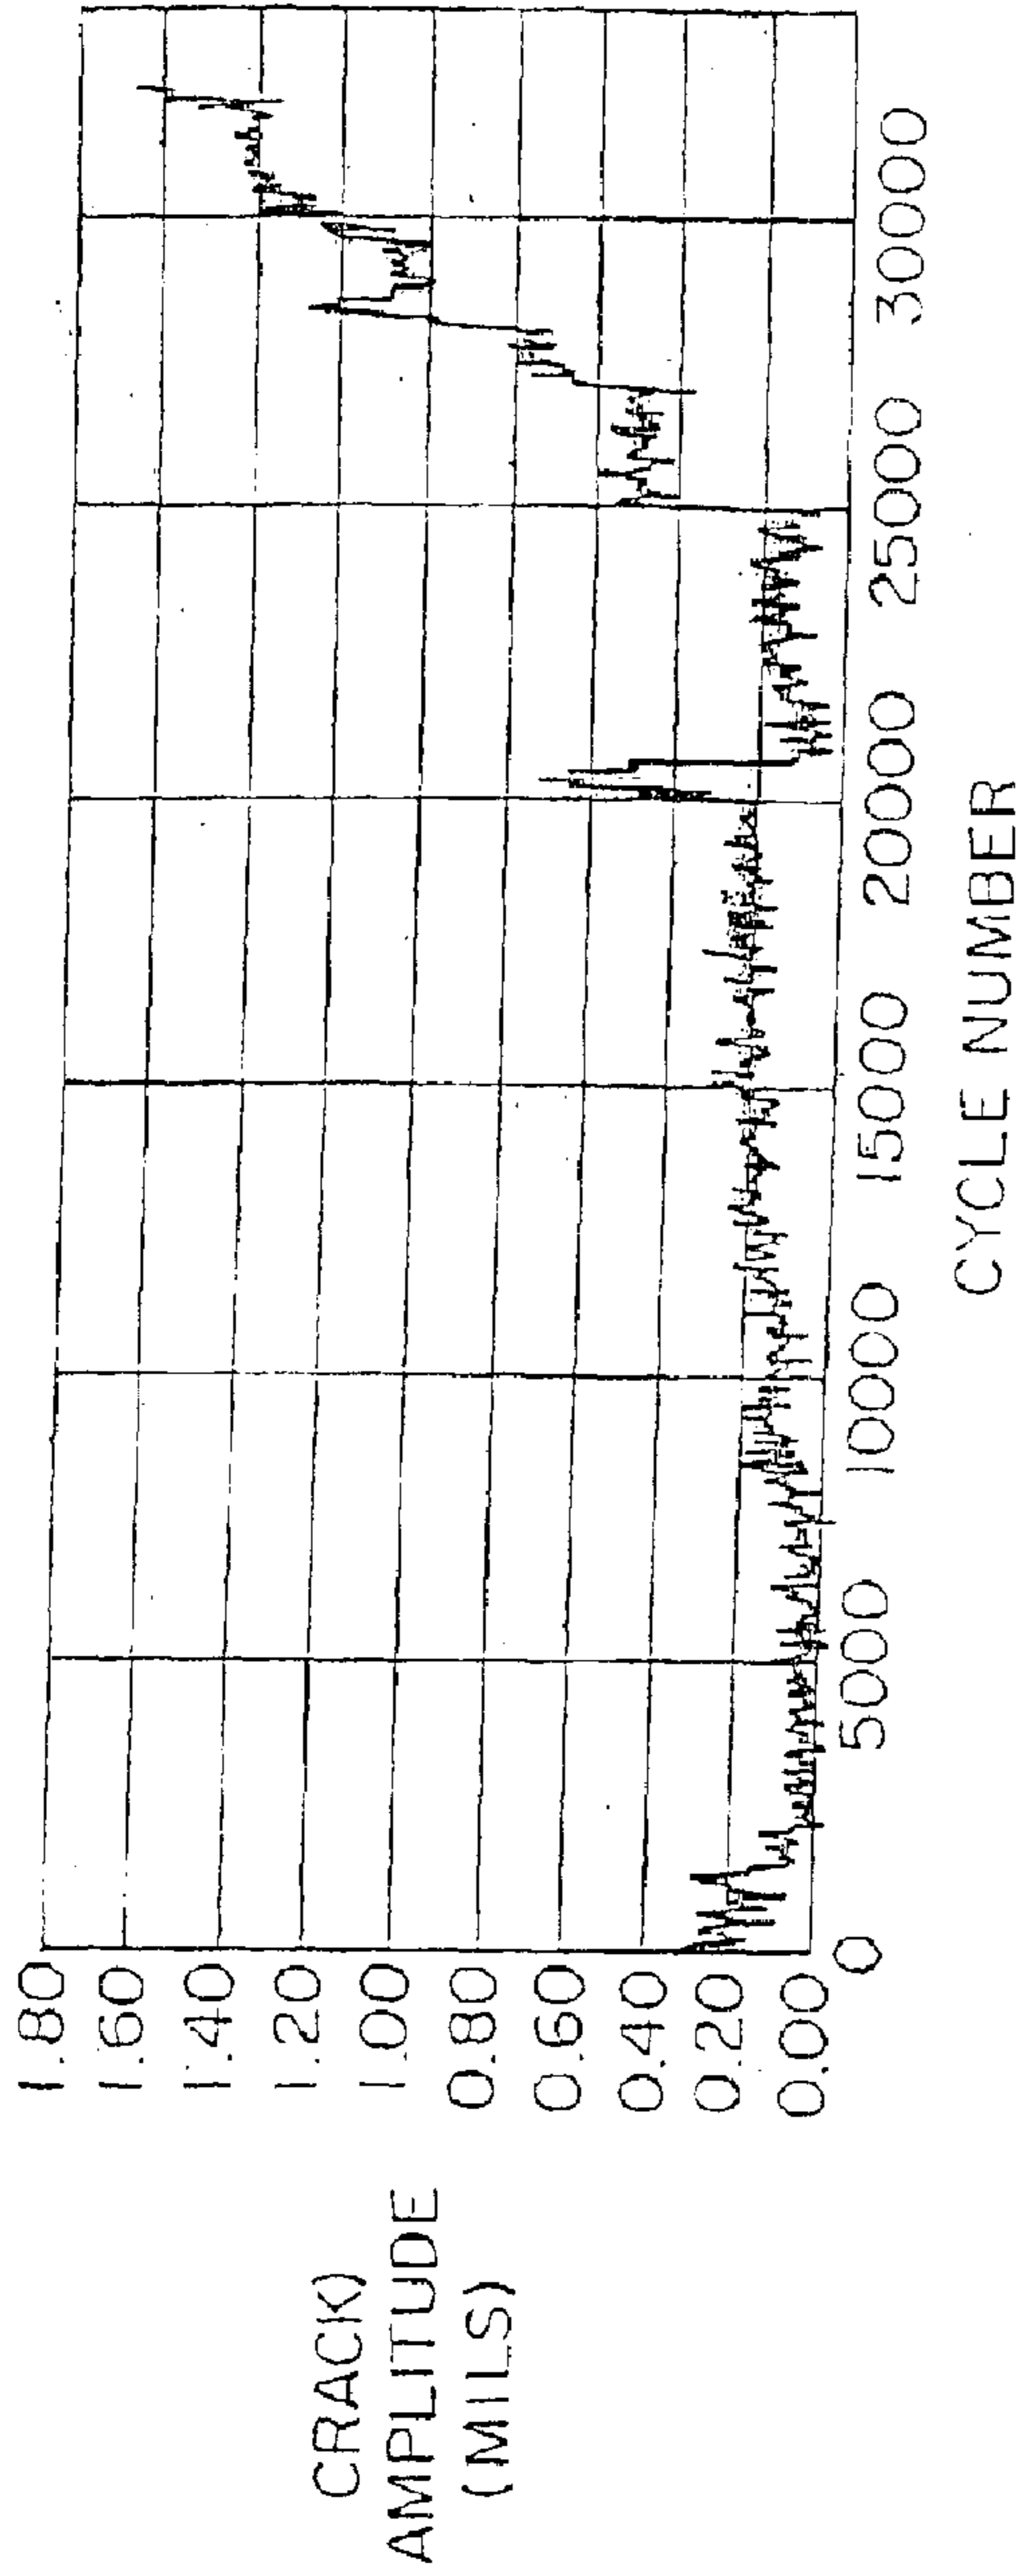 CRACK)
AMPLITUDE
(MILS)
1.80
1.60
1.40
1.20
1.00
0.80
0.60
0.40
0.20
0.00
0 5000 10000 15000 20000 25000 30000
CYCLE NUMBER